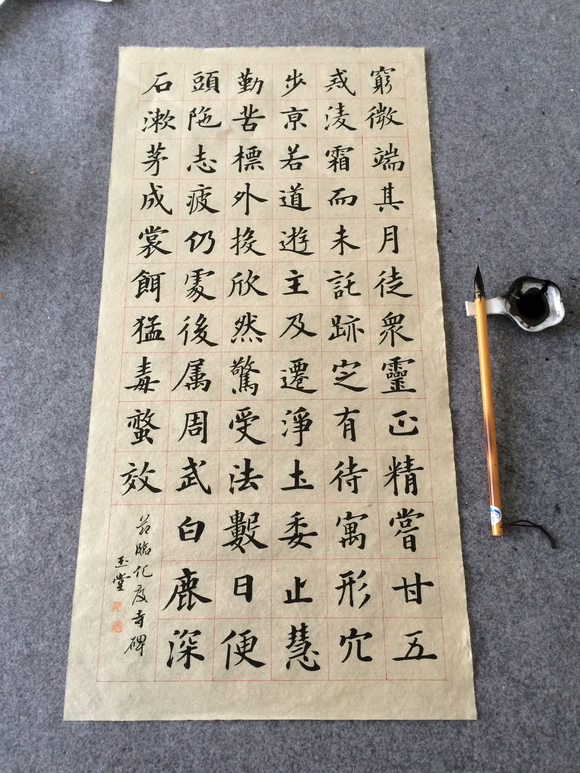 窮微端其月徒衆靈正精嘗甘五
惑凌霜而未託跡定有待寓形穴
步京若道遊主及遷淨土委止慧
勤苦標外挨欣然驚受法數日便
頭陁志疲仍處後属周武白鹿深
石漱茅成裳餌猛毒螫效
节臨化度寺碑
玉堂